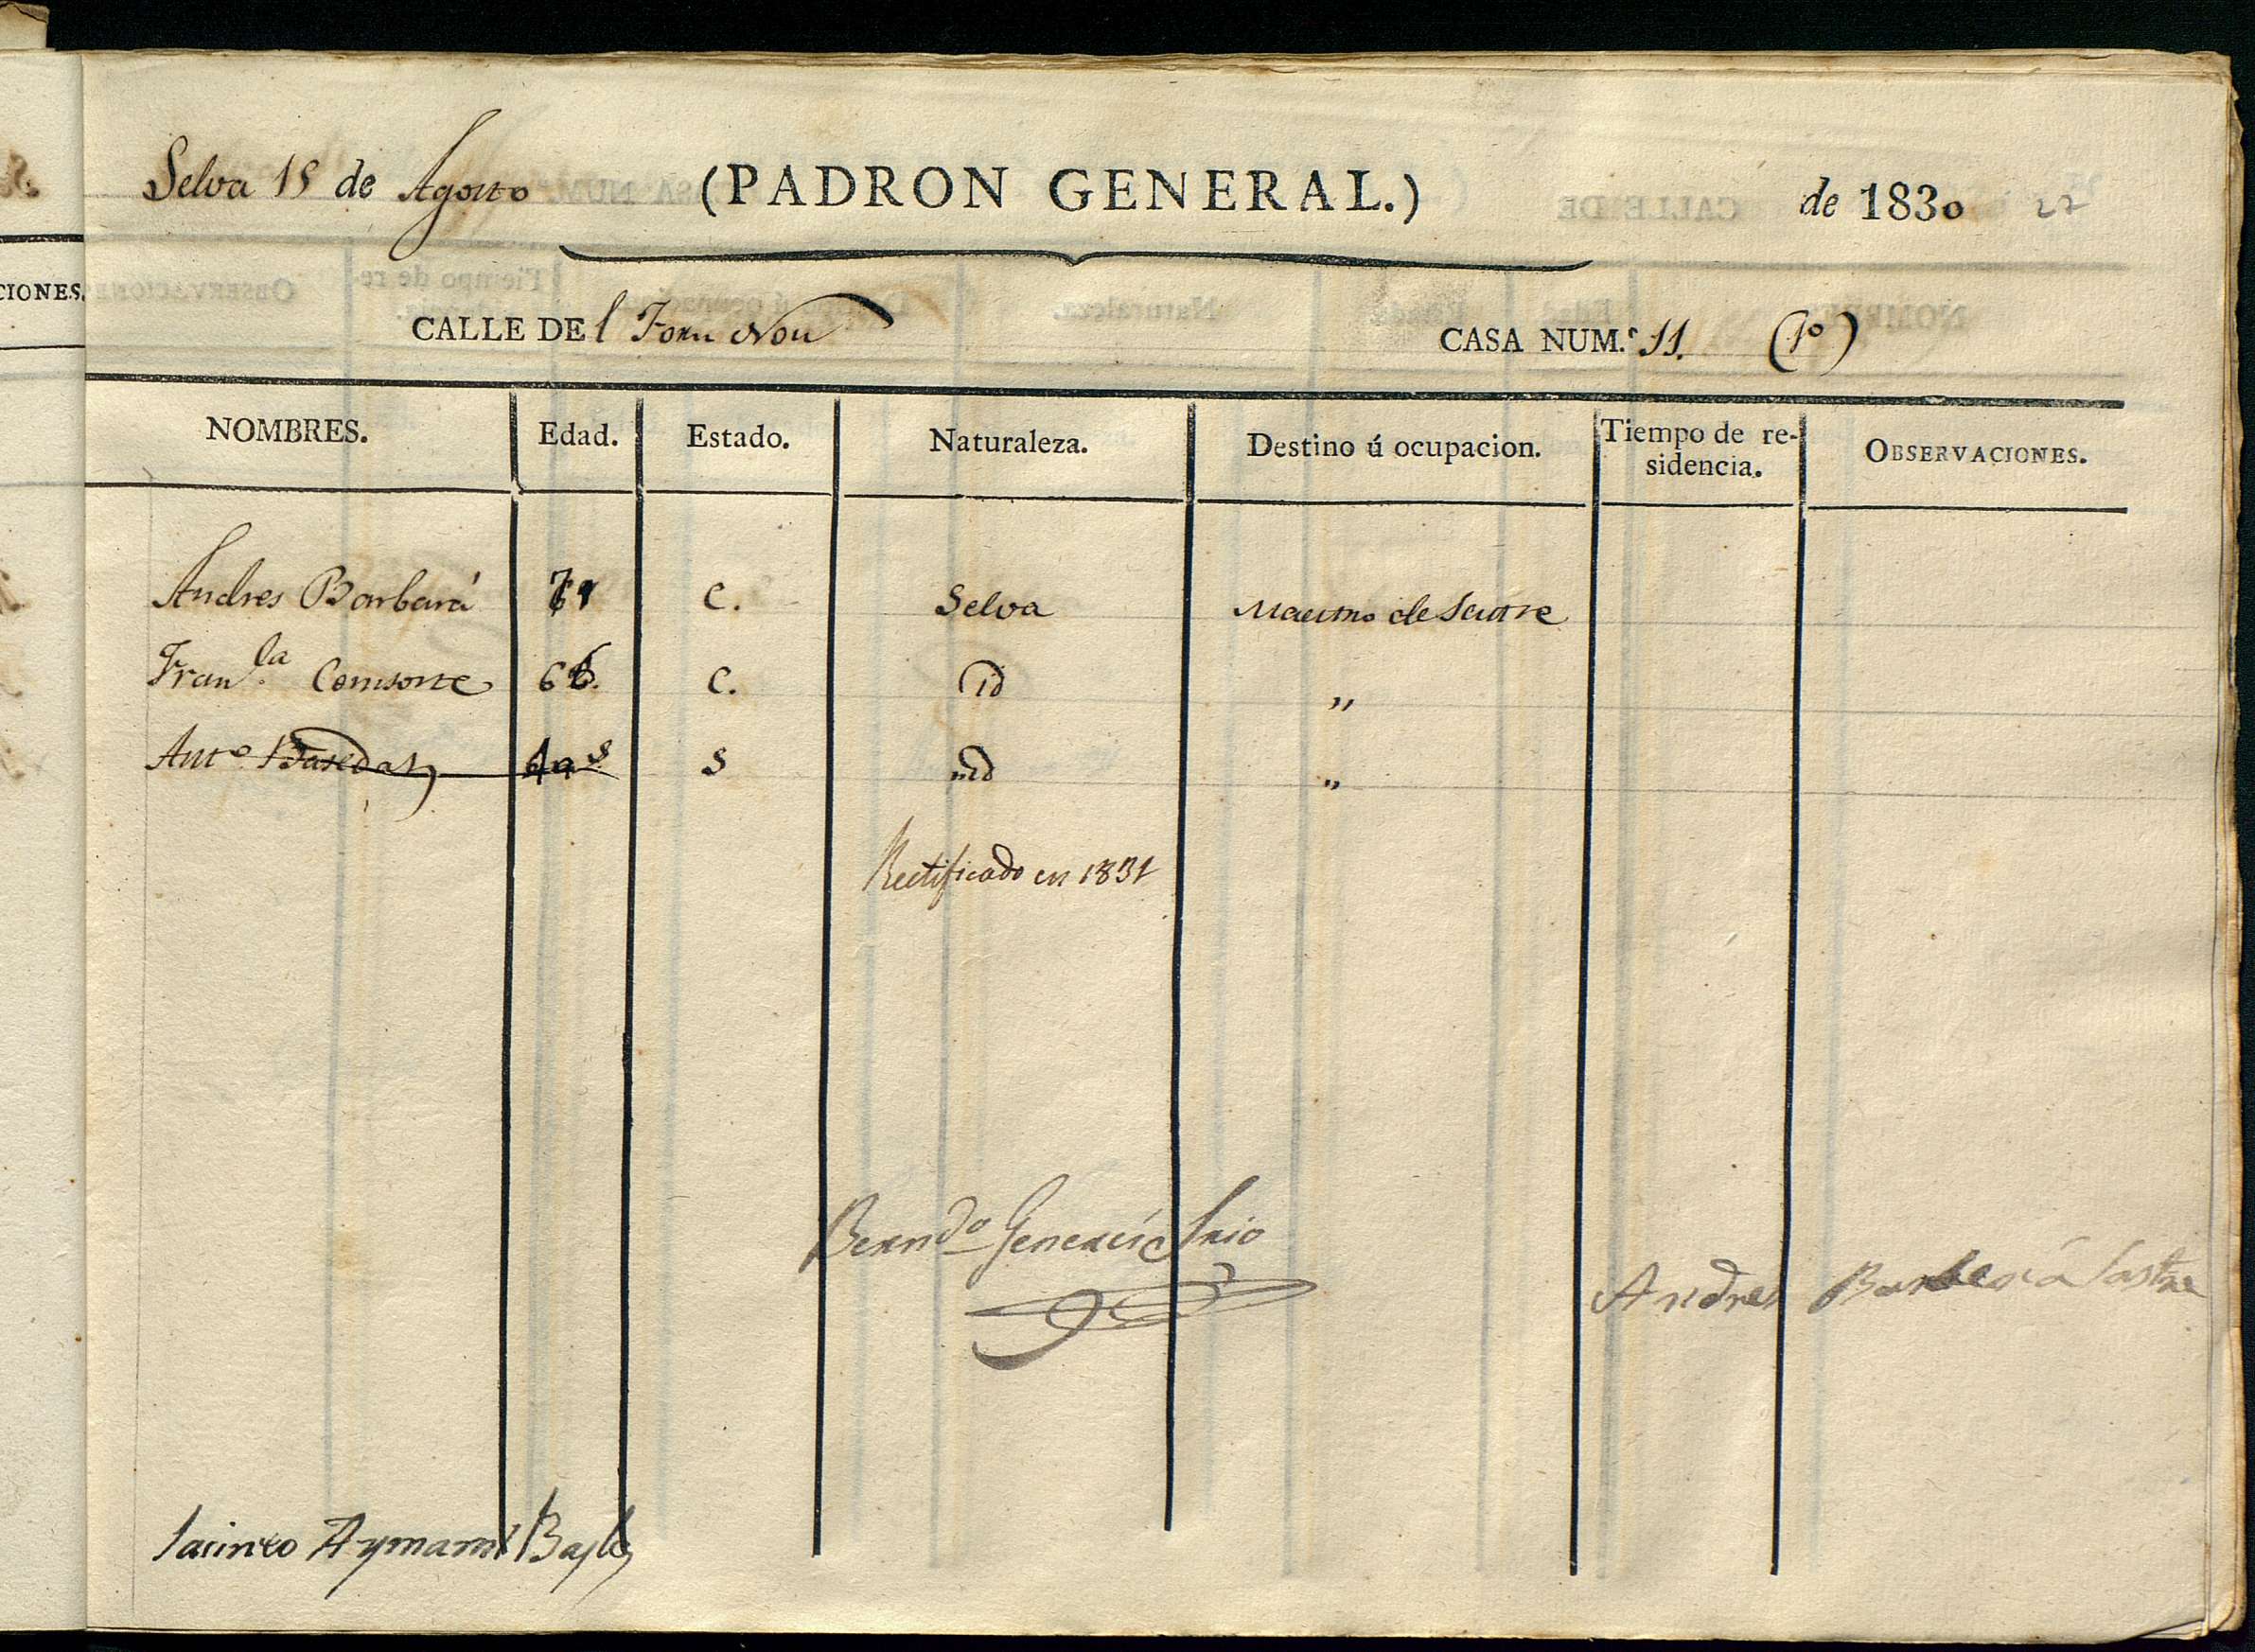 Selva 15 de Agosto (PADRON GENERAL.) de 1830 27
CALLE DEl Forn Nou CASA NUM.º 11. (1º)
CIONES.
NOMBRES. Edad. Estado. Naturaleza. Destino ú ocupacion. Tiempo de re-
sidencia. OBSERVACIONES.
Andres Barbará 71 C. Selva Maestro de Sastre
Fran.ca Consorte 66. C. id „
Ant.º Basedas S id „
Rectificado en 1831
Bernd.o Srio
Andres Barberá Sastre
Jacinto Aymami Bayle